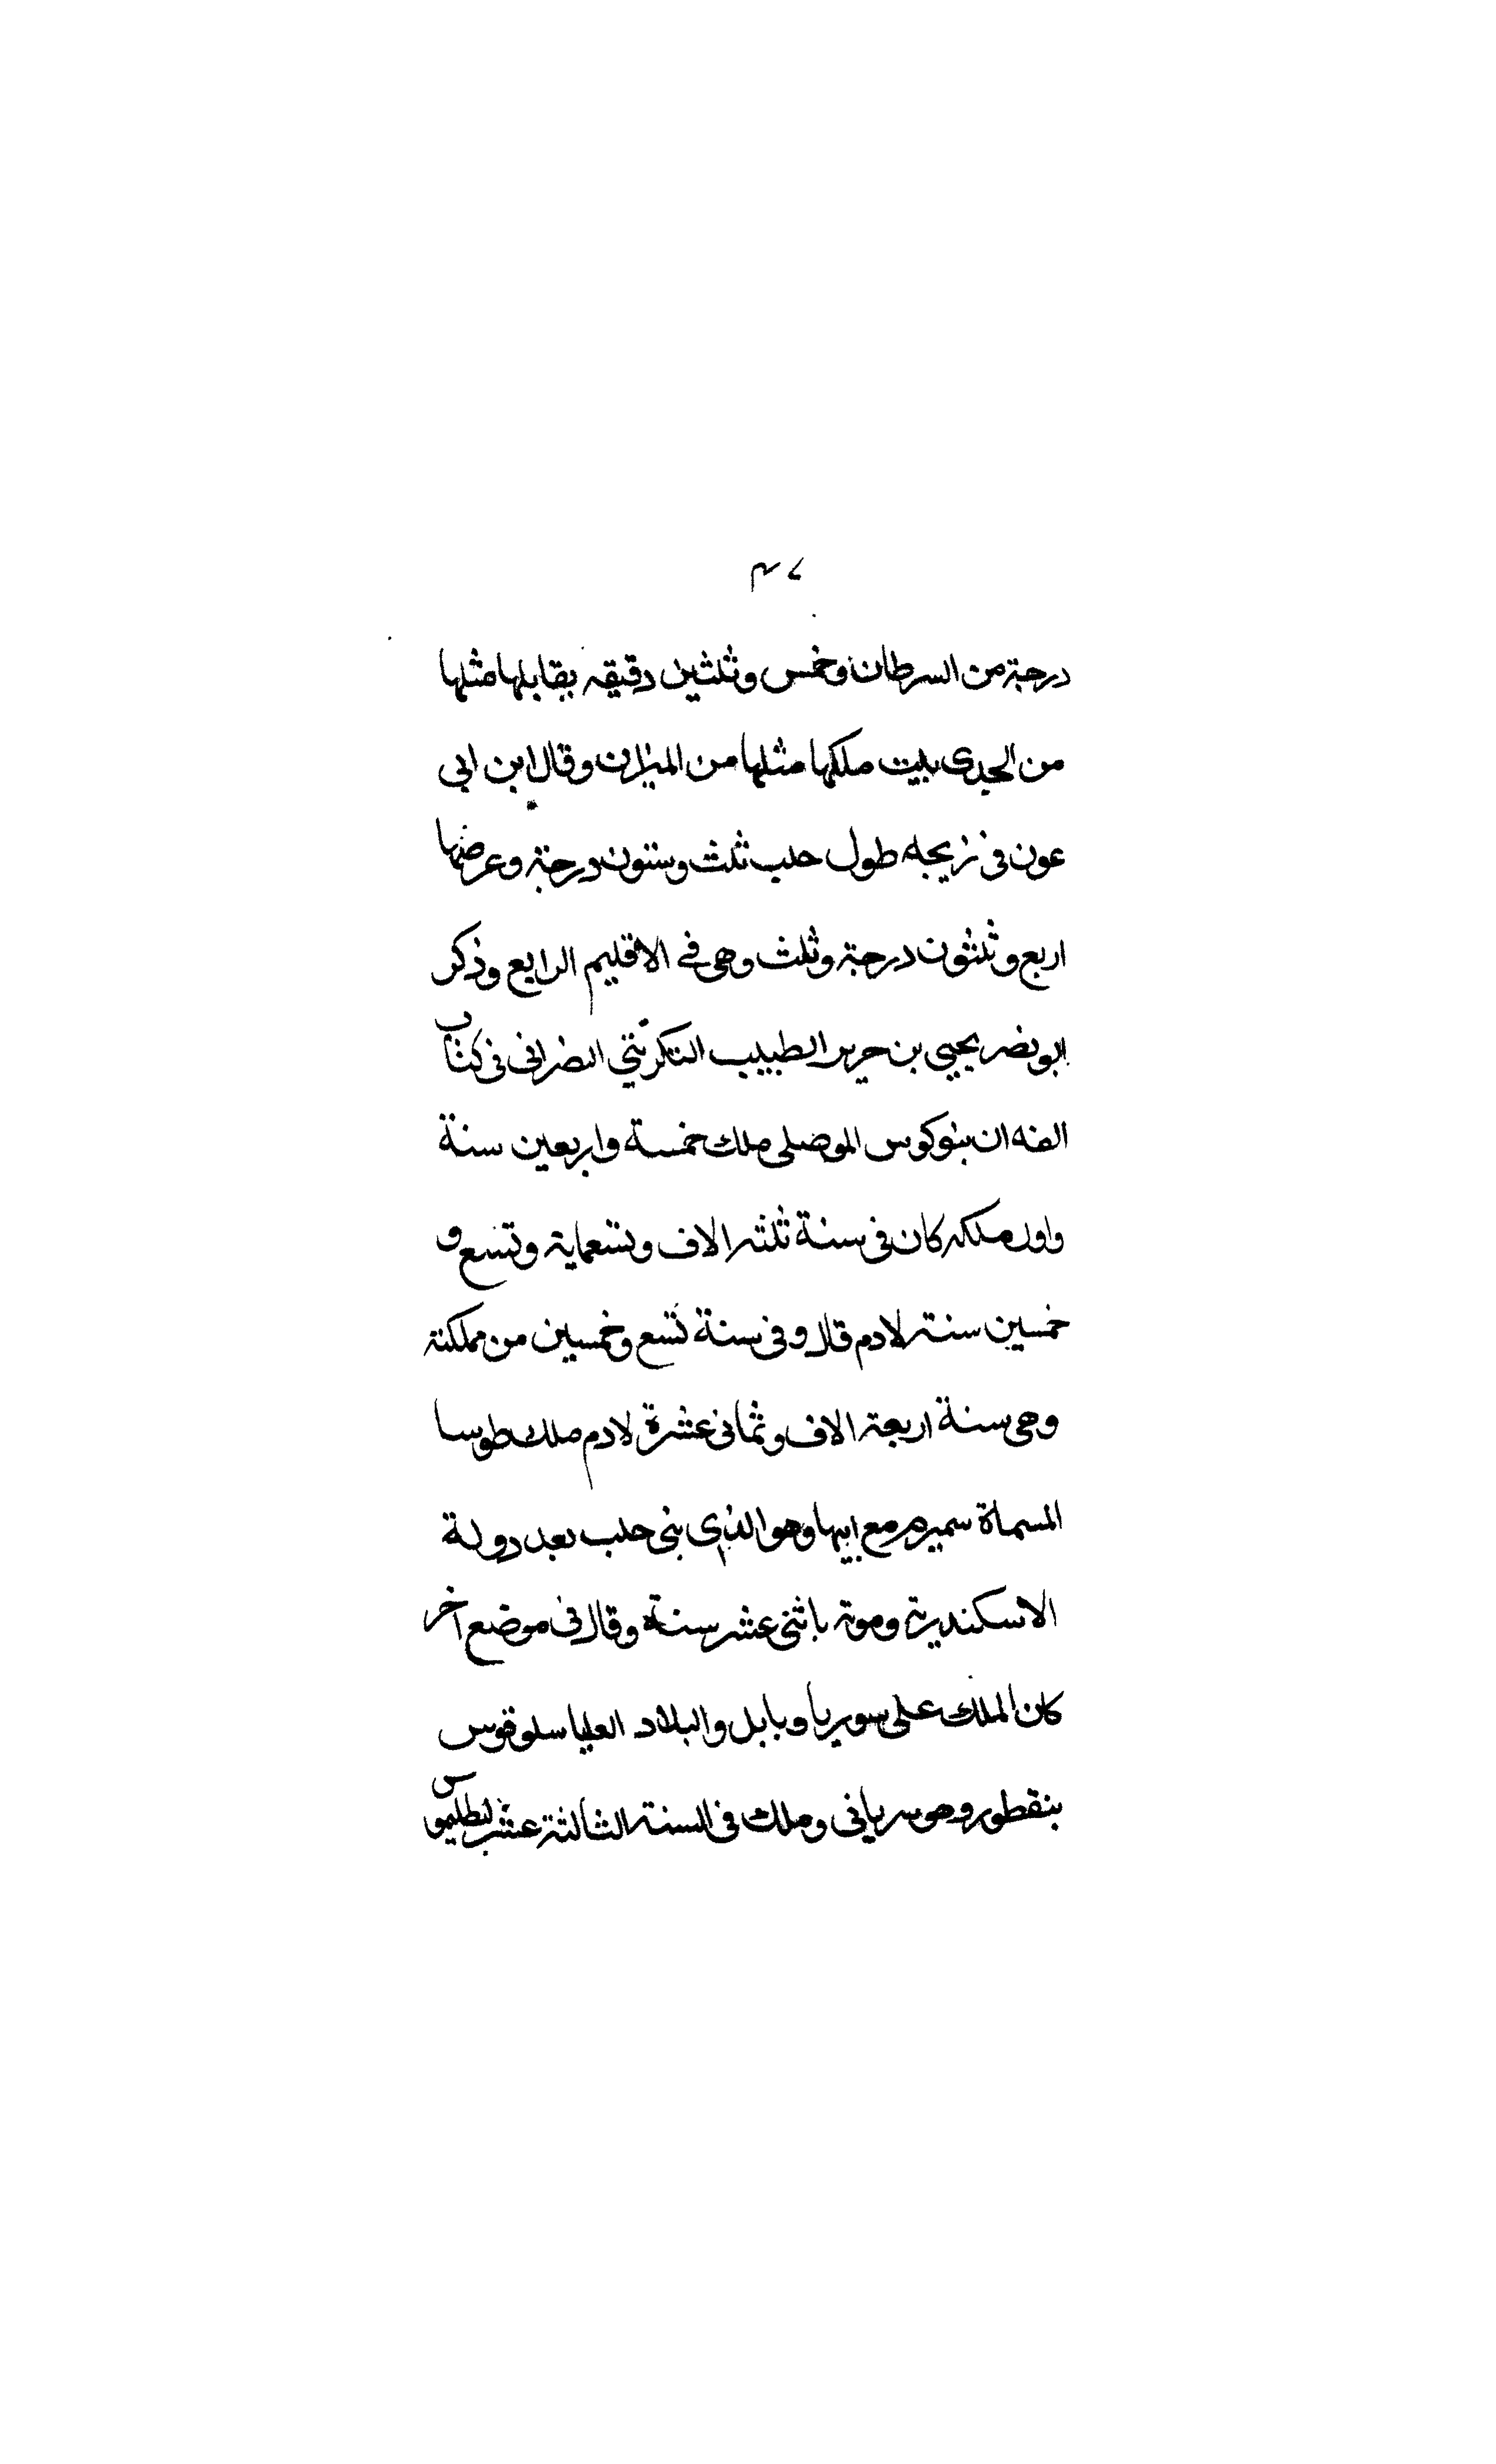 ٣٧
درجة من السرطان وخمس وثلثين دقيقه يقابلها مثلها
من الجدى بيت ملكها مثلها من الميزان وقال ابن ابى
عون فى زيجه طول حلب ثلث وستون درجة وعرضها
اربع وثلثون درجة وثلث وهى فى الاقليم الرابع وذكر
ابو نصر يحيى بن جرير الطبيب التكريتي النصرانى فى كتاب
الفه ان بلوكوس الموصلى ملك خمسة واربعين سنة
واول ملكه كان فى سنة ثلثه الاف وتسعماية وتسع و
خمسين سنة لادم قال وفى سنة تسع وخمسين من مملكته
وهى سنة اربعة الاف وثمانى عشرة لادم ملك طوسا
المسماة سميرم مع ابيها وهو الذى بنى حلب بعد دولة
الاسكندرية وموته باثنى عشر سنة وقال فى موضع اخر
كان الملك على سوريا وبابل والبلاد العليا سلوقوس
بنقطور وهو سريانى وملك فى السنة الثالثة عشر لبطليموس